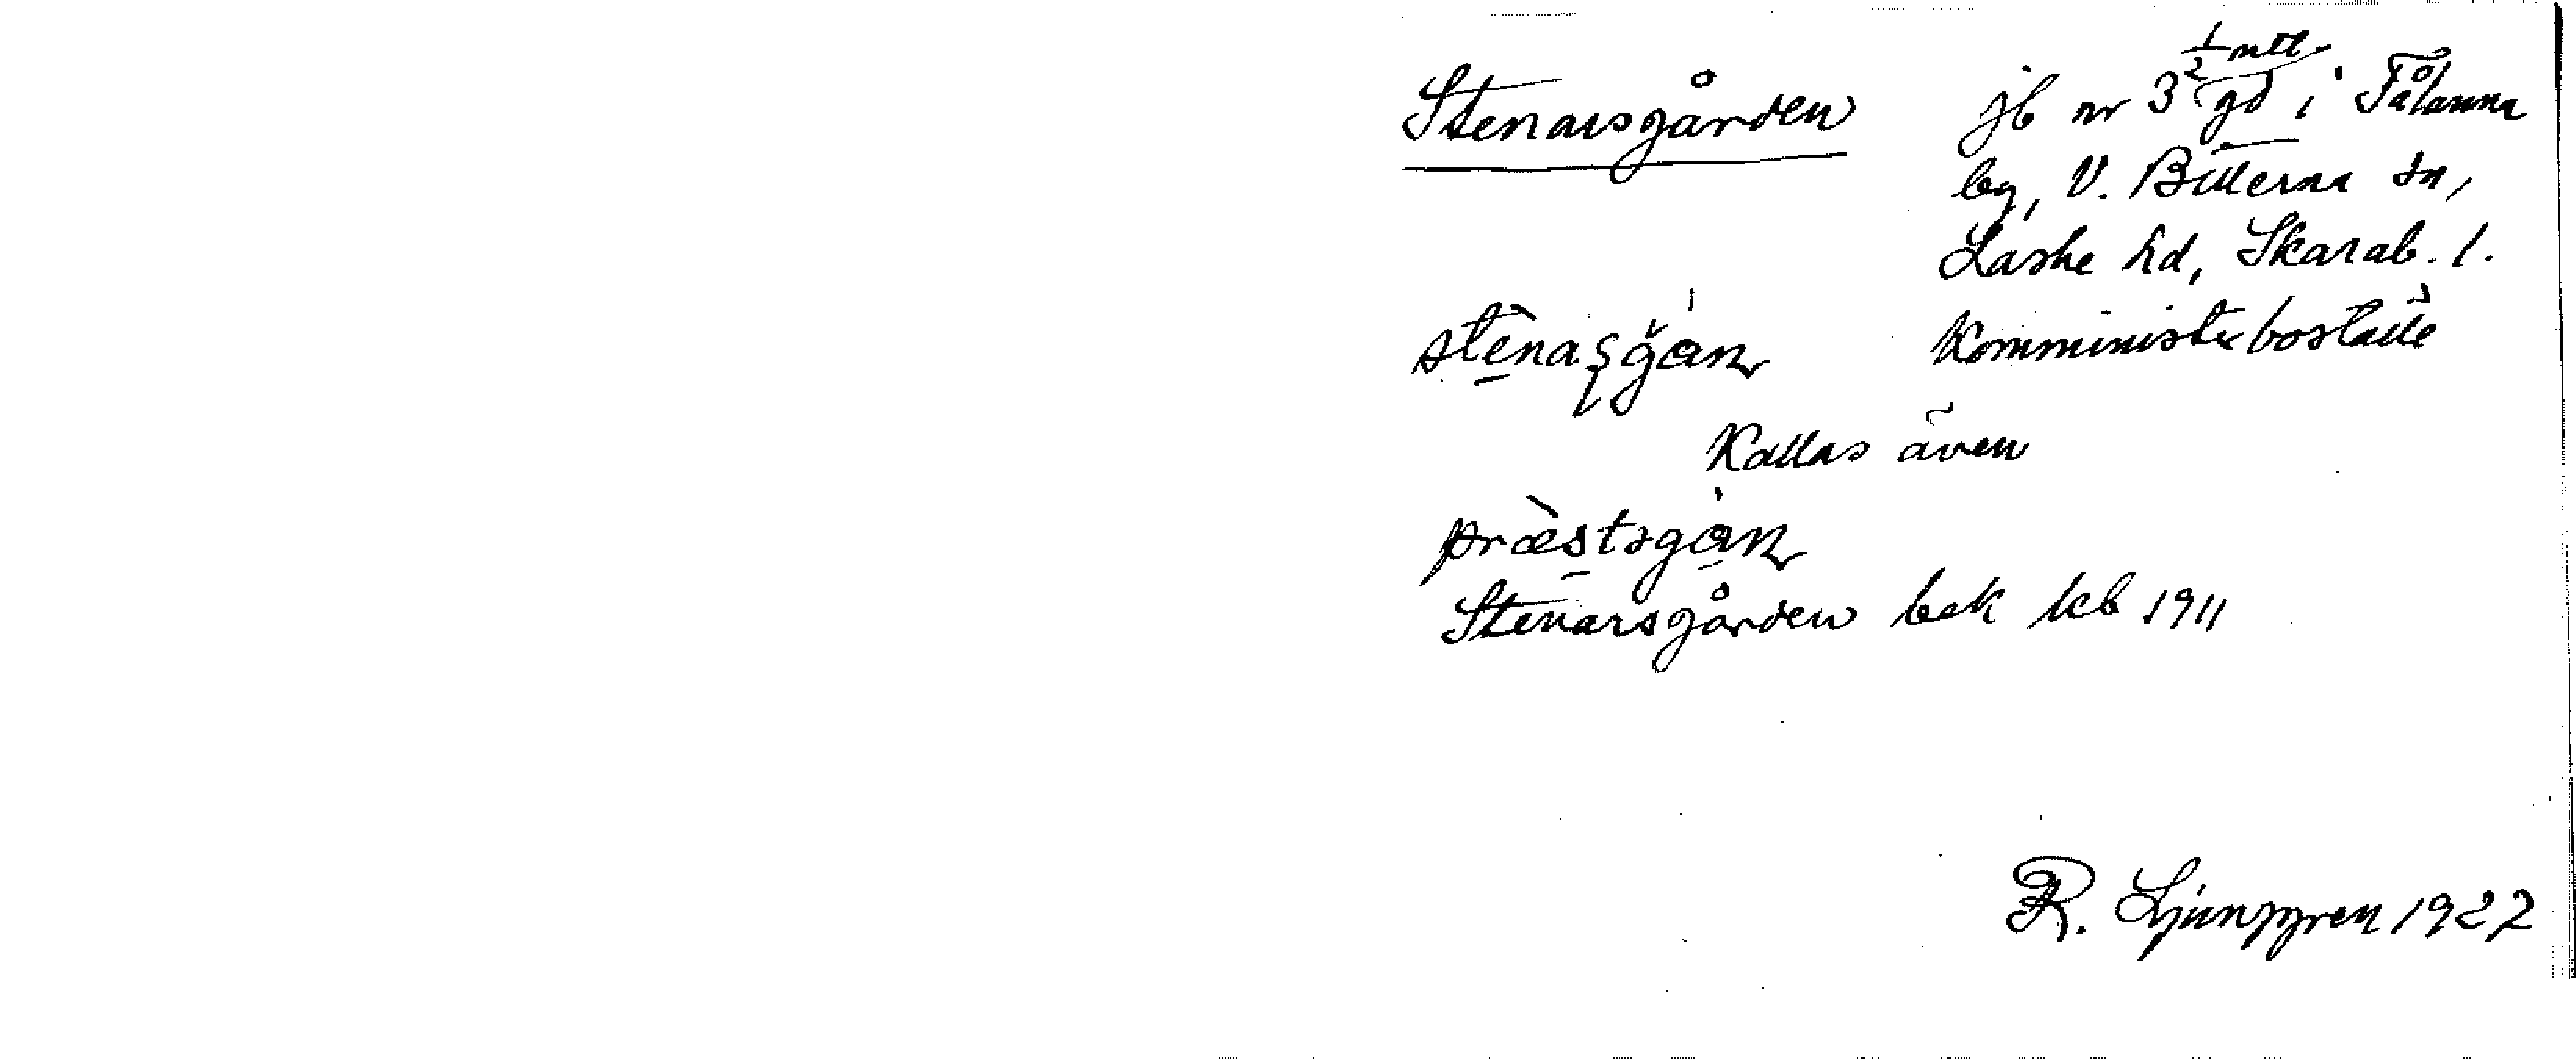 Stenarsgården jb nr 3 1/2 mtl gd i Fålanna
by, V. Bitterna sn,
Laske hd, Skarab. l.
stènasgán Komministerboställe
Kallas även
præ̀stsgán
Stenarsgården bek kb 1911
R. Ljunggren 1927